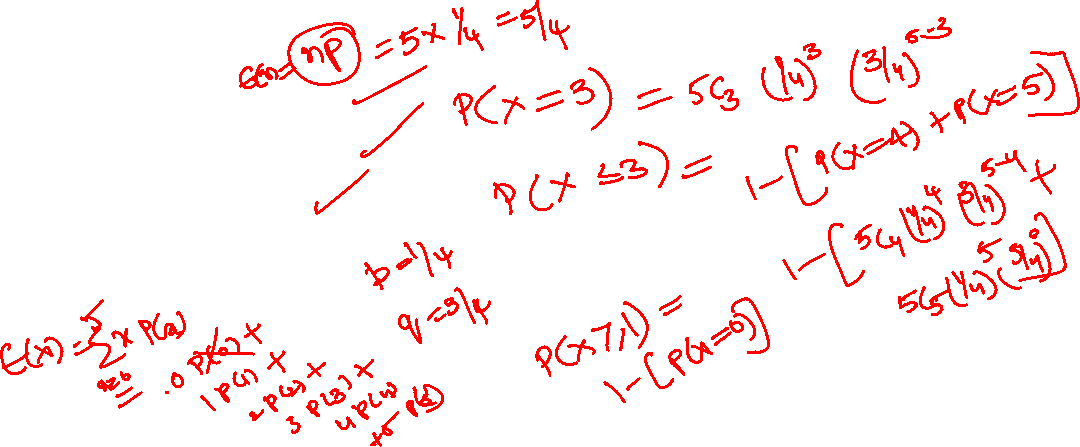 E(x) = np = 5 x 1/4 = 5/4
P(x = 3) = 5C3 (1/4)^3 (3/4)^5-3
P(x ≤ 3) = 1 - [P(x=4) + P(x=5)]
1 - [5C4 (1/4)^4 (3/4)^5-4 +
5C5 (1/4)^5 (3/4)^0]
p = 1/4
q = 3/4
P(x ≥ 1) =
1 - [P(x=0)]
E(x) = Σ x P(x)
x=0
. 0 P(0) +
1 P(1) +
2 P(2) +
3 P(3) +
4 P(4)
+5 P(5)